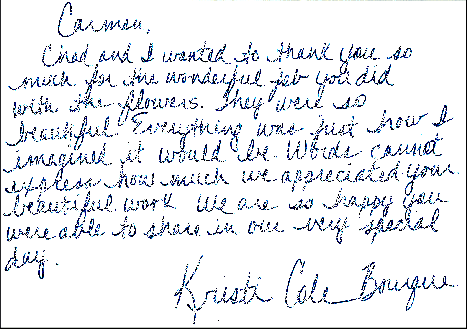 Carmen,
Chad and I wanted to thank you so
much for the wonderful job you did
with the flowers. They were so
beautiful. Everything was just how I
imagined it would be. Words cannot
express how much we appreciated your
beautiful work. We are so happy you
were able to share in our very special
day.
Kristi Cole Bourque